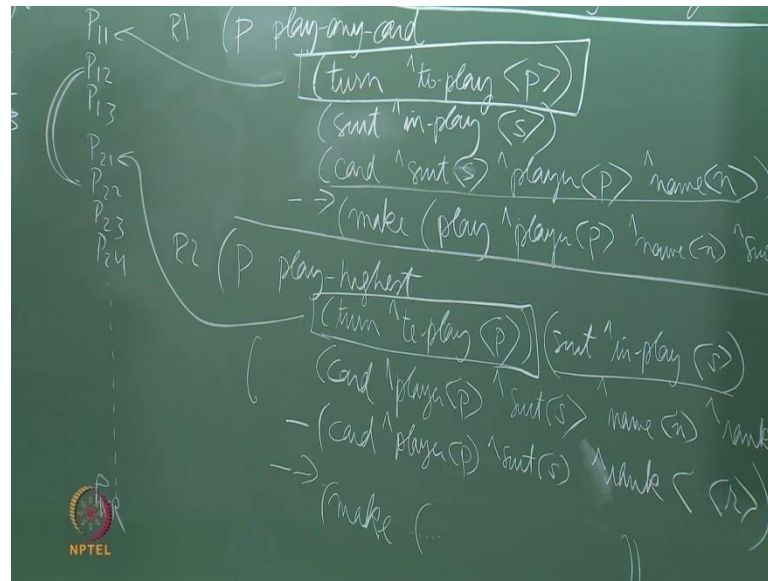 P11
P12
P13
P21
P22
P23
P24
R1 (P play-any-card
(turn ^to-play <p>)
(suit ^in-play <s>)
(card ^suit<s> ^player<p> ^name<n>)
--> (make (play ^player<p> ^name<n> ^sui
R2 (P play-highest
(turn ^to-play <p>) (suit ^in-play <s>)
(card ^player<p> ^suit<s> ^name<n> ^rank
-(card ^player<p> ^suit<s> ^rank < <r>)
-->
(make (...
NPTEL